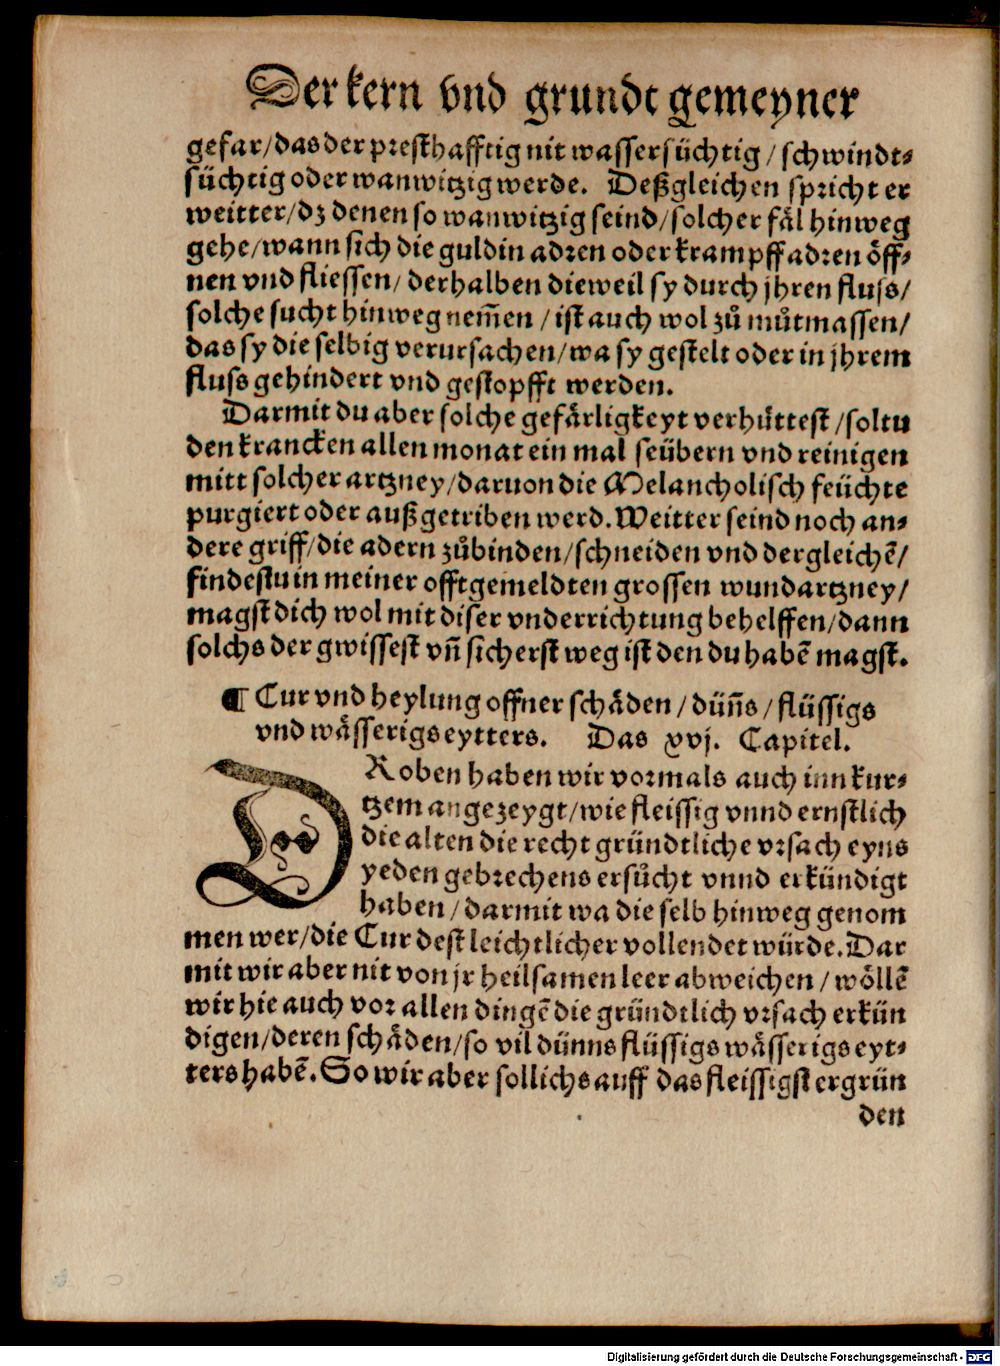 Der kern vnd grundt gemeyner
gefar/das der presthafftig nit wassersüchtig/schwindt-
süchtig oder wanwitzig werde. Deßgleichen spricht er
weitter/dz denen so wanwitzig seind/solcher fäl hinweg
gehe/wann sich die guldin adren oder krampffadren öff-
nen vnd fliessen/derhalben dieweil sy durch jhren fluss/
solche sucht hinweg nem̃en/ist auch wol zů můtmassen/
das sy die selbig verursachen/wa sy gestelt oder in jhrem
fluss gehindert vnd gestopfft werden.
Darmit du aber solche gefärligkeyt verhüttest/soltu
den krancken allen monat ein mal seübern vnd reinigen
mitt solcher artzney/daruon die Melancholisch feüchte
purgiert oder außgetriben werd. Weitter seind noch an-
dere griff/die adern zůbinden/schneiden vnd dergleichẽ/
findestu in meiner offtgemeldten grossen wundartzney/
magst dich wol mit diser vnderrichtung behelffen/dann
solchs der gwissest vñ sicherst weg ist den du habẽ magst.
¶ Cur vnd heylung offner schäden/düñs/flüssigs
vnd wässerigs eytters. Das xvj. Capitel.
DRoben haben wir vormals auch inn kur-
tzem angezeygt/wie fleissig vnnd ernstlich
die alten die recht gründtliche vrsach eyns
yeden gebrechens ersůcht vnnd erkündigt
haben/darmit wa die selb hinweg genom
men wer/die Cur dest leichtlicher vollendet würde. Dar
mit wir aber nit von jr heilsamen leer abweichen/wöllẽ
wir hie auch vor allen dingẽ die gründtlich vrsach erkün
digen/deren schäden/so vil dünns flüssigs wässerigs eyt-
ters habẽ. So wir aber sollichs auff das fleissigst ergrün
den
Digitalisierung gefördert durch die Deutsche Forschungsgemeinschaft - DFG